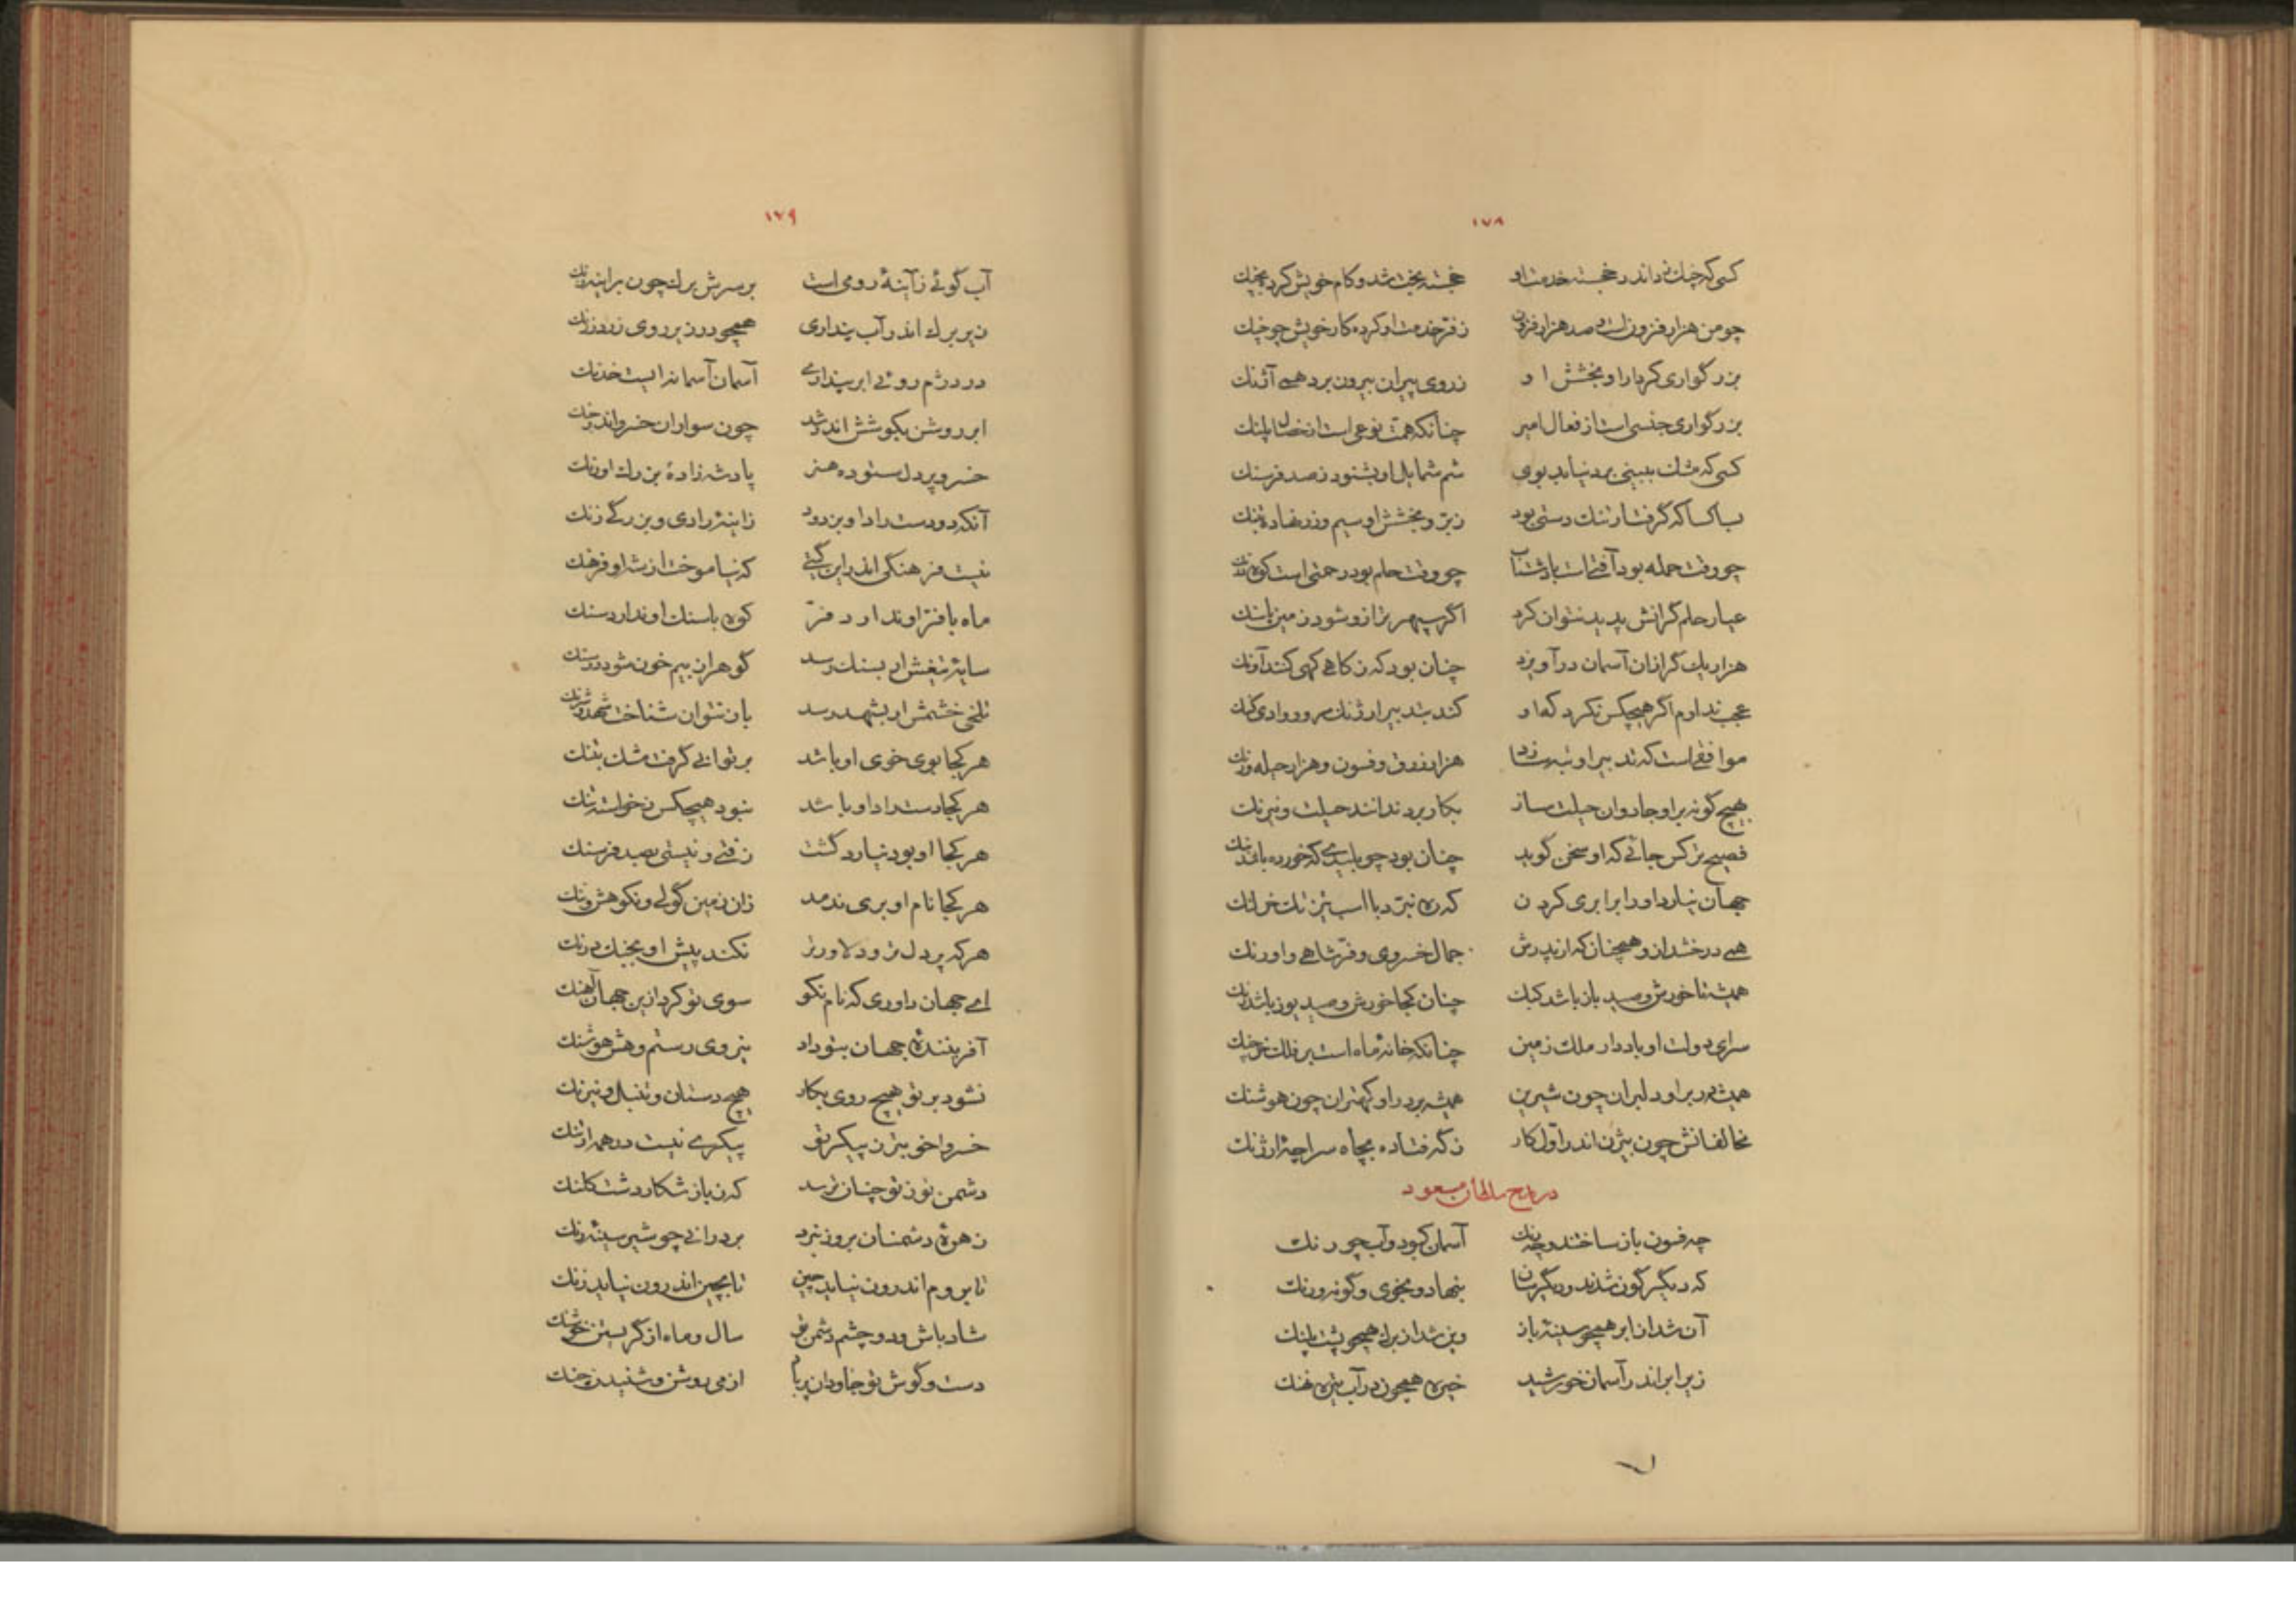 ١٧٨
کسی که چنک نداند زد خجسته خدمت او خجسته بخت شد و کام خویش کرد بچنک
چو من هزار فزون است و صد هزار فزون ز فرّ خدمت او کرده کار خویش چو چنک
بزرگواری کردار او و بخشش او ز روی پیران بیرون برد همی آژنک
بزرگواری جنسی است از فعال امیر چنانکه همت نوعی است از خصال پلنک
کسی که مشک ببینی برد نیابد بوی شم شمایل او بشنود ز صد فرسنک
بسا کسا که گرفتار تنک دستی بود ز برّ و بخشش او سیم و زر نهاده بتنک
چو وقت حمله بود آفتی است باد شتاب چو وقت حلم بود رحمتی است کوه درنک
عیار حلم گرانش پدید نتوان کرد اگر سپهر ترازو شود زمین پاسنک
هزار یک گر از آن آسمان در آویزد چنان بود که ز کاهی کهی کنند آونک
عجب ندارم اگر هیچکس نکرد که او کند بتدبیر ارژنک مرو وادی کنک
موافقی است که تدبیر او تبه سازد هزار زرق و فسون و هزار حیله و رنک
بهیچ گونه بر او جادوان حیلت ساز بکار برد ندانند حیلت و نیرنک
فصیح تر کس جائی که او سخن گوید چنان بود چو پلیدی که خورده باشد بنک
جهان نیارد او را برابری کردن که ره نبرد با اسب تیز تک خر لنک
همی درخشد از او همچنان که از پدرش جمال خسروی و فرّ شاهی و اورنک
همیشه تا خورش و صید باز باشد کبک چنان کجا خورش و صید یوز باشد رنک
سرای دولت او باد دار ملک زمین چنانکه خانهٔ ماه است بر فلک خرچنک
همیشه در بر او دلبران چون شیرین همیشه بر در او کهتران چون هوشنک
مخالفانش چون بیژن اندر اوّل کار ز که فتاده بچاه سراچهٔ ارژنک
در مدح سلطان مسعود
چه فسون باز ساختند و چه رنک آسمان کبود و آب چو رنک
که دیگر گون شدند و دیگرسان بنهاد و بخوی و گونه و رنک
آن شد از ابر همچو سینهٔ باز وین شد از برک همچو پشت پلنک
زیر ابر اندر آسمان خورشید خیره همچون در آب تیره نهنک
١٧٩
آب گوئی ز آینهٔ رومی است بر سرش برک چون بر آینه زنک
زیر برک اندر آب پنداری همچو در زیر روی زرد زرنک
در دژم روئی ابر پنداری آسمان آسمانه ایست خدنک
ابر روشن بکوشش اندر شد چون سواران خسرو اندر جنک
خسرو پر دل ستوده هنر پادشه زادهٔ بزرک اورنک
آنکه دو دست راد او بزدود ز آینهٔ رادی و بزرگی زنک
نیست فرهنگی اندر این گیتی که نیاموخت آن شه او فرهنک
ماه با فرّ او ندارد فرّ کوه با سنک او ندارد سنک
سایهٔ تیغش ار بسنک رسد گوهر از بیم خون شود در سنک
تلخی خشمش ار بشهد رسد باز نتوان شناخت شهد و شرنک
هر کجا بوی خوی او باشد بر توانی گرفت مشک بتنک
هر کجا دست راد او باشد نبود هیچکس ز خواسته تنک
هر کجا او بود نیارد گشت زفتی و نیستی بصد فرسنک
هر کجا نام او بری ندمد زان زمین گولی و نکوهش و ننک
هر که پر دل تر و دلاور تر نکند پیش او بجنک درنک
ای جهان داوری که نام نکو سوی تو کرد از این جهان آهنک
آفرینندهٔ جهان بتو داد نیروی رستم و هش هوشنک
نشود بر تو هیچ روی بکار هیچ دستان و تنبل و نیرنک
خسروا خوبتر ز پیکر تو پیکری نیست در همه ارتنک
دشمن تو ز تو چنان ترسد که ز باز شکار دشت کلنک
زهرهٔ دشمنان بروز نبرد بر درانی چو شیر سینهٔ رنک
تا بروم اندرون نیاید چین تا بچین اندرون نیاید زنک
شاد باش و دو چشم دشمن تو سال و ماه از گریستن چو شنک
دست و گوش تو جاودان پر باد از می روشن و شنیدن چنک